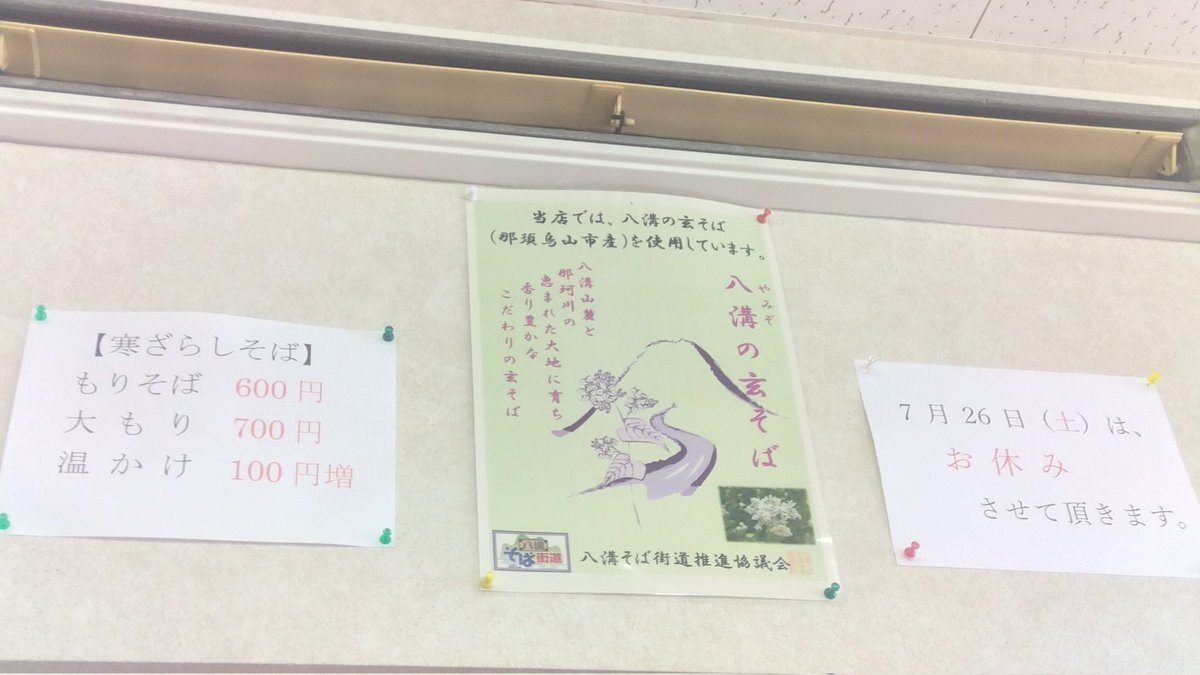 【寒ざらしそば】
もりそば 600円
大もり 700円
温かけ 100円増
当店では、八溝の玄そば
(那須烏山市産)を使用しています。
やみぞ
八溝の玄そば
八溝山麓と
那珂川の
恵まれた大地に育ち
香り豊かな
こだわりの玄そば
八溝
そば街道
八溝そば街道推進協議会
7月26日（土）は、
お休み
させて頂きます。